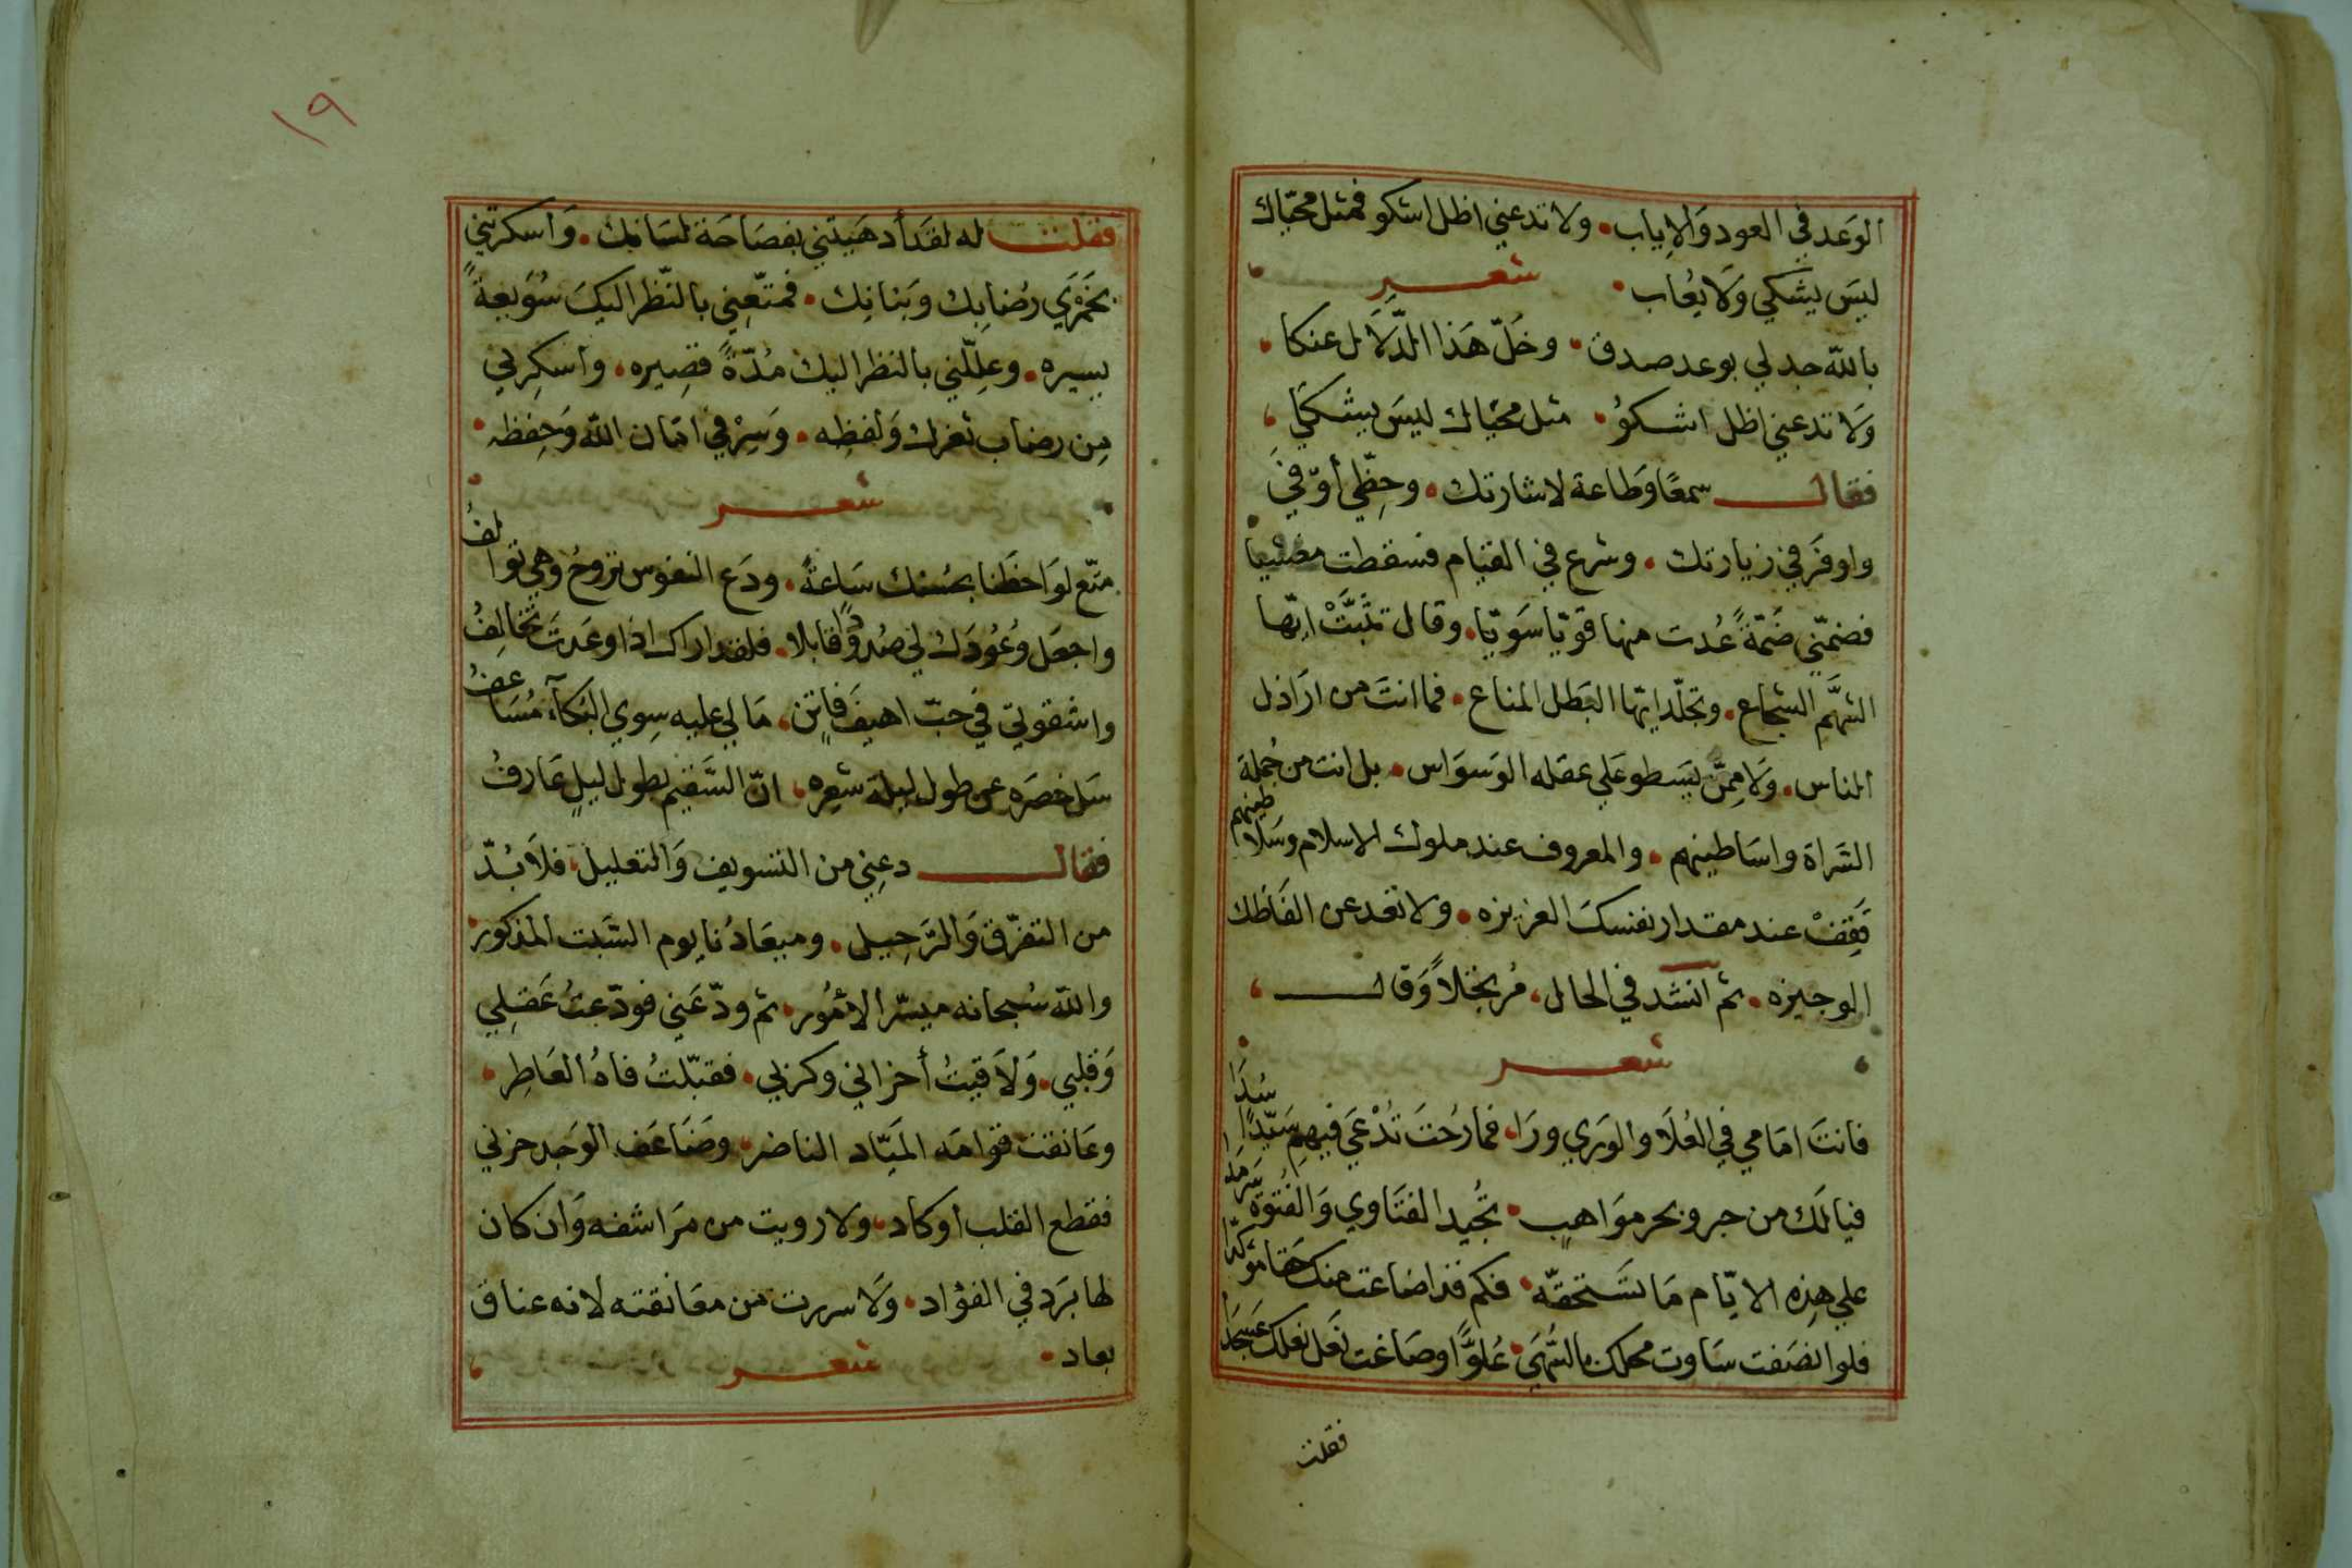 الوَعد في العود وَالاِياب . ولا تدعني اظل اشكو فمثل محيّاك
ليسَ يشكي وَلا يُعاب . شعر
باللّه جد لي بوعد صدق . وخلّ هَذا الدّلاَل عنكا .
وَلا تدعني اظل اشكوُ . مثل محيّاك ليسَ يشكيٰ
فقال سمعًا وَطاعة لاشارتك . وحِظّي أوّفيَٰ
واوفَر في زيارتك . وشرع في القيام فسقطت مغشيا
فضمّني ضَمّةً عُدت منها قويّا سَويّا . وقال تثبَّتْ ايّها
الشهَّم الشجاع . وتجلّد ايّها البَطل المناع . فما انتَ من ارَاذل
الناس . وَلا مِمّن يَسَطو عَلي عقله الوَسوَاس . بل انت من جُملة
السَراة واسَاطينهم . والمعروف عند ملوك الاسلام وسَلاطينهم
فَقِفْ عند مقدار نفسكَ العزيزه . ولا تعد عن الفَاظك
الوجيزه . ثم انشد في الحال . مُرتجلاً وَقال
شعر
فانتَ امَامي في العُلاَ والوَري ورَا . فما رُحتَ تُدْعَي فيهمِ سَيّدًا سُدَا
فيالَك من حبر وبحر موَاهبٍ . تجُيد الفتَاوي وَالفُتوَّة سَرمدَا
علي هذِه الايّام مَا تسَتحقّه . فكم قد اضاعت منك حَقا موَكدَا
فلو انصَفت سَاوت محلك بالسُّهَي . عُلوًّا وصَاغت نعَل نعلك عَسجدَا
فقلت
١٩
فقلت له لقَد أدهَيتني بفصَاحَة لسَانِك . وَاسكرتني
بخَمْرَي رضُابِك وبَنانِك . فمتّعِني بالنّظر اليكَ سُوَيعةً
يسيره . وعلِلّني بالنظر اليك مُدّةً قصِيره . واسكرِني
مِن رضاب ثغرك وَلفظِه . وَسِرْ في امَان اللّه وَحِفظِه .
شعر
متّع لوَاحظَنا بحسُنك سَاعةً . ودَع النفوس تروحُ وهي توالفُ
واجعَل وعُوُدَك لي صدُودًا قابلا . فلقد اراك اذا وعَدتَ تخُالِفُ
واشقوتي في حبّ اهيفَ فاتنٍ . مَا لي عليه سِوي البُكآءَ مُسَاعفُ
سَل خصَره عن طول ليلة شعره . انّ السَقيم بطول ليلٍ عَارفُ
فقال دعِني من التسويف وَالتعليل . فلاَ بُدّ
من التفرّق وَالرَّحِيل . وميعَادُنا يوم السَّبت المذكور
واللّه سُبحانه ميسّر الامُوُر . ثم ودّعَني فودّعتُ عَقلِي
وَقلبي . وَلاَقيتُ أحزاني وكربي . فقبّلتُ فاهُ العَاطِر .
وعَانقت قوامَه المَيّاد الناضر . وضَاعَف الوَجد حزني
فقطع القلب أو كاد . ولا رويت من مرَاشفه وَان كان
لها بَرَد في الفؤاد . وَلا سررت من معَانقته لانه عناق
بعاد . شعر